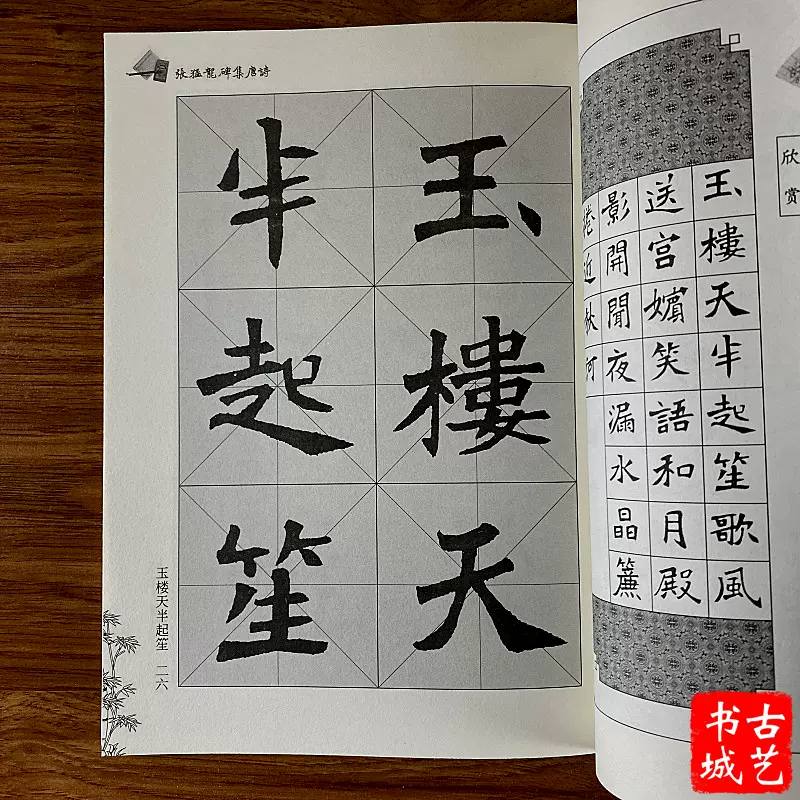 張猛龍碑集唐詩
玉樓天
半起笙
玉楼天半起笙 二六
欣赏
玉樓天半起笙歌風
送宮嬪笑語和月殿
影開聞夜漏水晶簾
近
古艺
书城